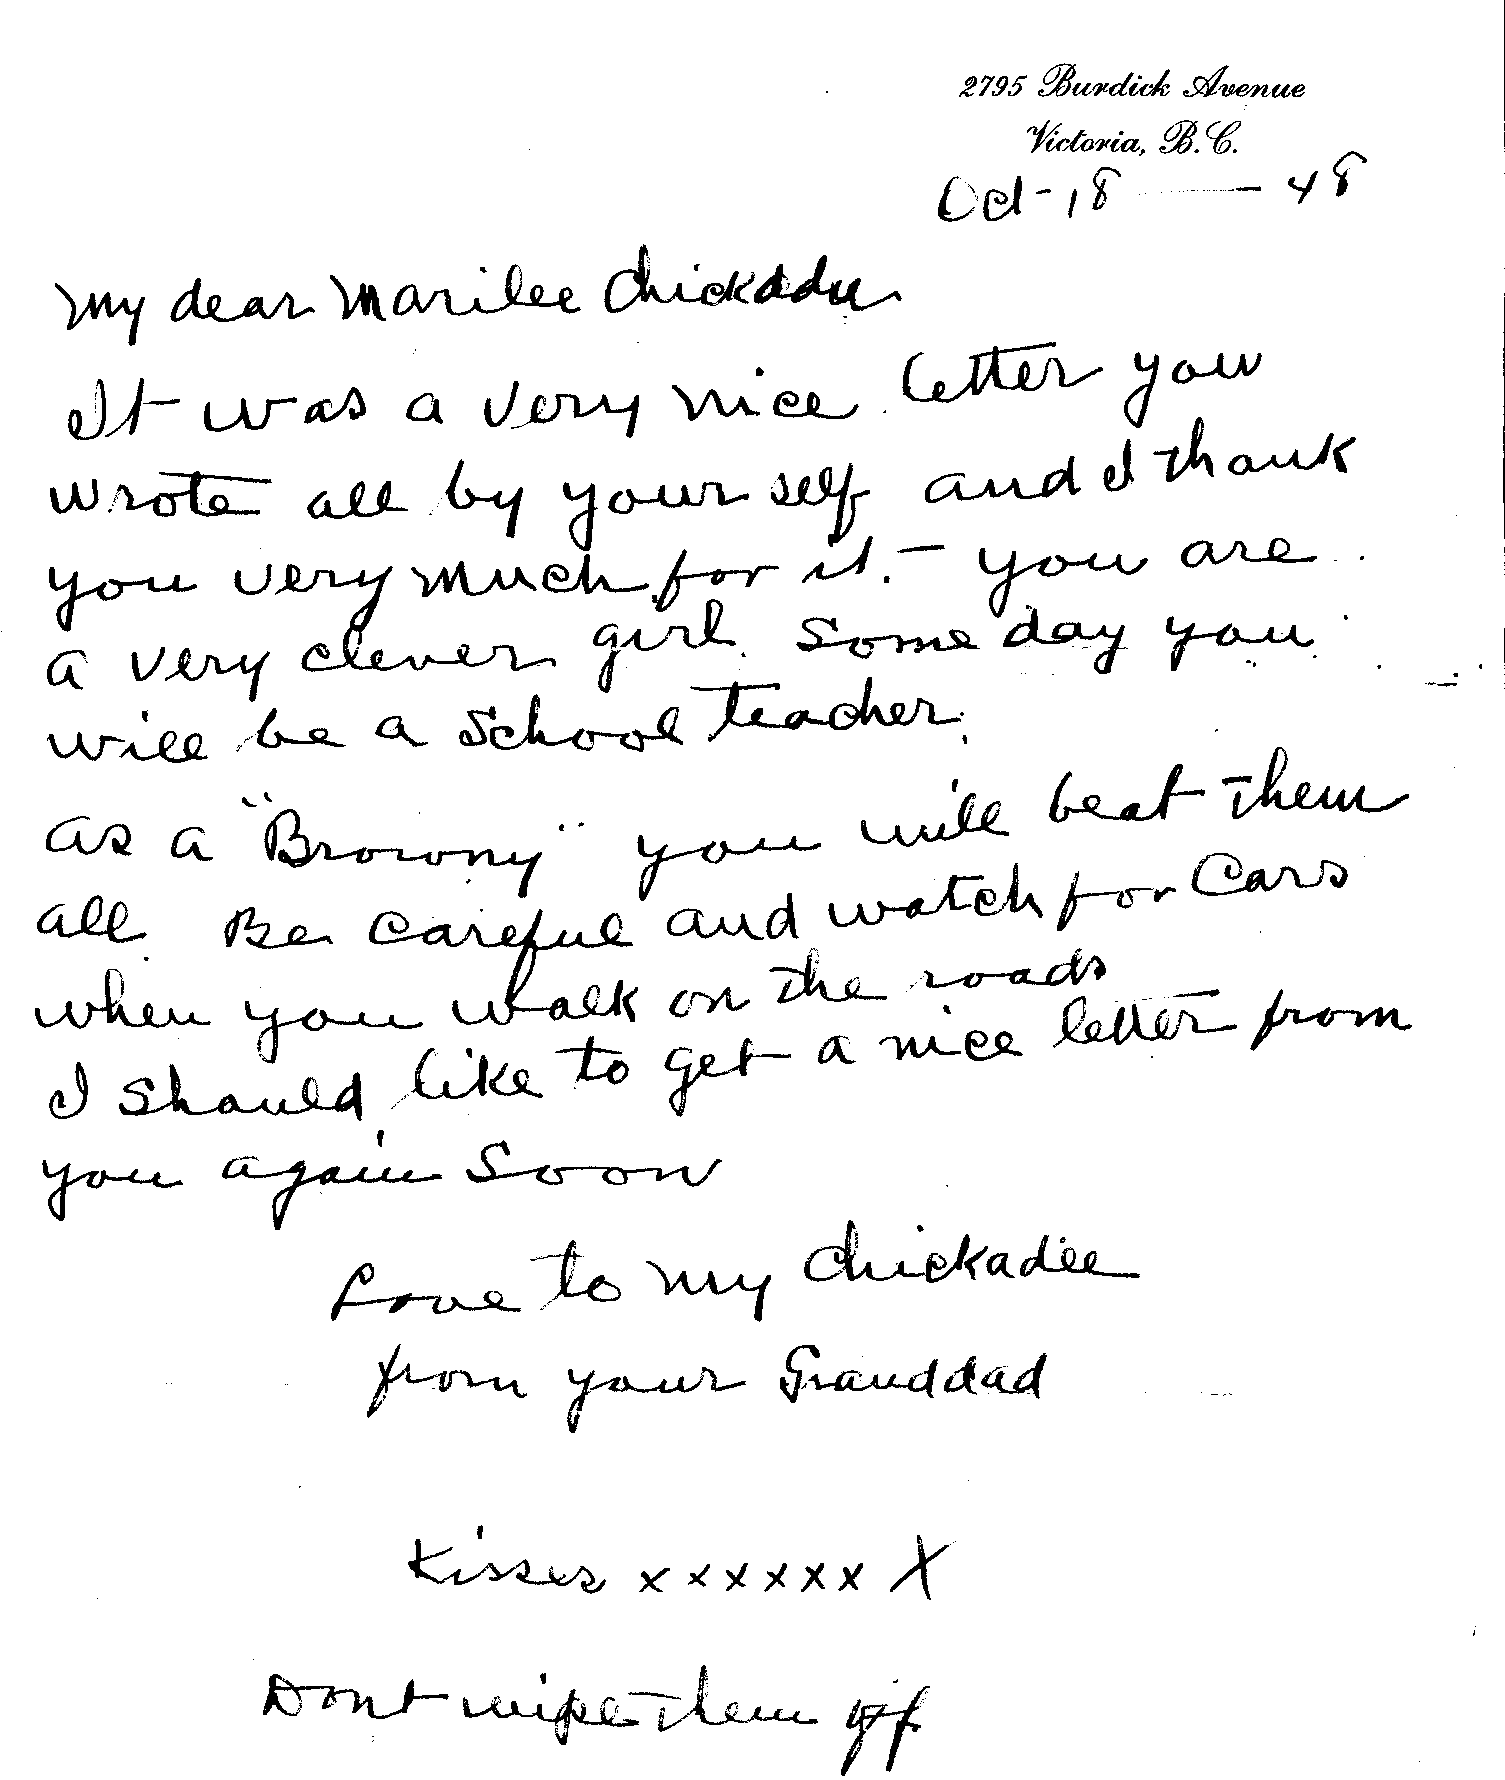 2795 Burdick Avenue
Victoria, B.C.
Oct-18 — 48
My dear Marilee Chickadee
It was a very nice letter you
wrote all by your self and I thank
you very much for it. – you are
a very clever girl. Some day you
will be a School teacher.
as a "Browny" you will beat them
all. Be careful and watch for Cars
when you walk on the roads
I Should like to get a nice letter from
you again Soon
Love to my Chickadee
from your Granddad
Kisses x x x x x x X
Dont wipe them off